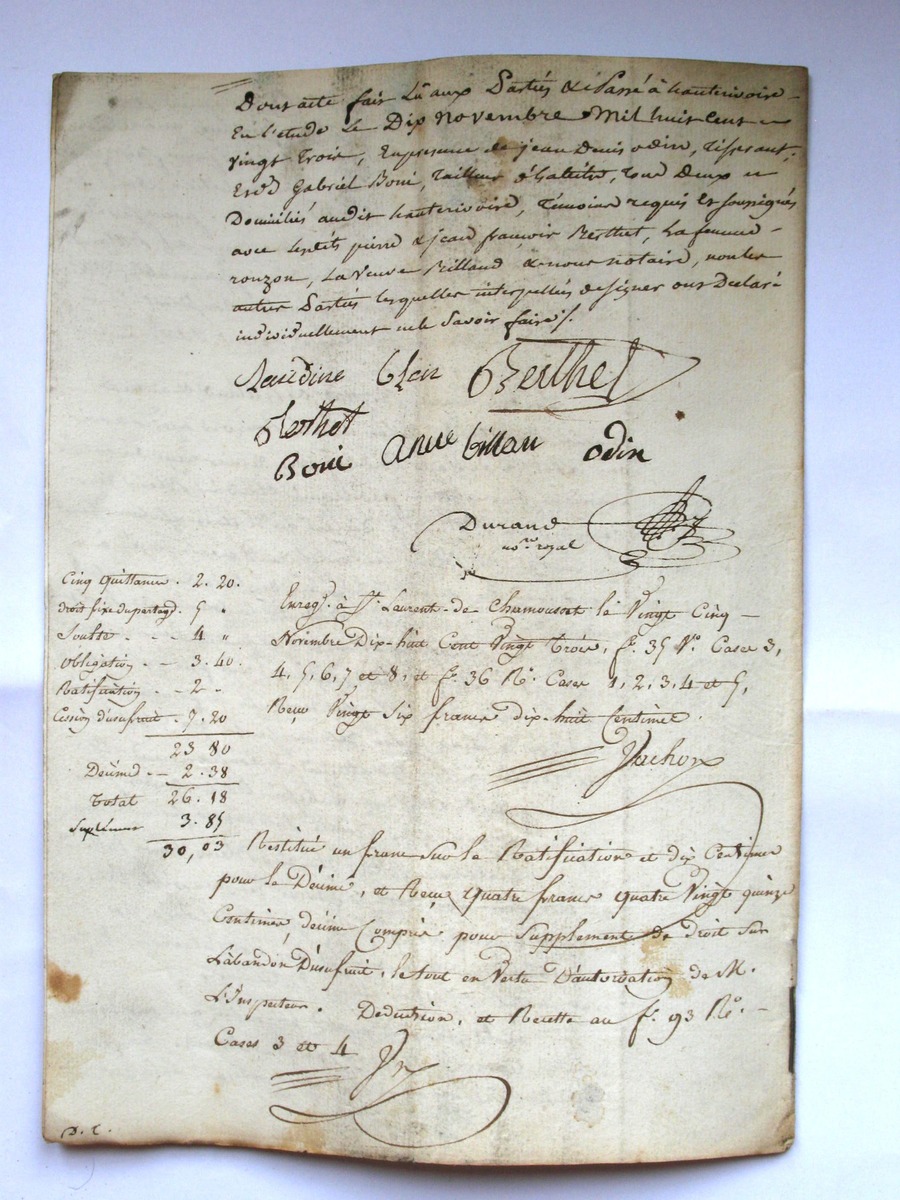 Dont acte fait Lû aux Parties & Passé à hauterivoire
En l'étude Le Dix Novembre Mil huit Cent
Vingt Trois, En presence de jean Denis odin, Tisserant,
Et de Gabriel Boni, Tailleur d'habits, tous Deux
Domiciliés audit hauterivoire, Témoins requis Et soussignés
avec lesdits pierre & jean françois Berthet, La femme
ronzon, La Veuve Billand & nous notaire, non les
autres Parties lesquelles interpellées de signer ont Declaré
individuellement ne le Savoir faire /.
Claudine Blein Berthet
Berthet
Boni Anne billan odin
Durand
no.re royal
Cinq quittances . 2. 20.
Droit fixe du partage . 5 "
Soulte - - - 4 "
Obligation - - 3. 40.
Ratification - - 2 .
Cession d'usufruit . 7. 20
23 80
Décime - - 2. 38
Total 26. 18
Suplément 3. 85
30, 03
Enregt. à St. Laurent-de-Chamousset le Vingt Cinq
Novembre Dix-huit Cent Vingt trois, fo. 35 Vo. Cases 3,
4, 5, 6, 7 et 8, et fo. 36 Ro. Cases 1, 2, 3, 4 et 5,
Reçu Vingt Six francs dix-huit Centimes.
Restitué un franc Sur la Ratification et dix Centimes
pour le Décime, et Reçu quatre francs quatre Vingt quinze
Centimes, décime Compris pour Supplement de droit Sur
L'abandon D'usufruit, le tout en Vertu D'autorisation de M.
L'Inspecteur. Deduction, et Recette au fo. 93 Ro.
Cases 3 et 4